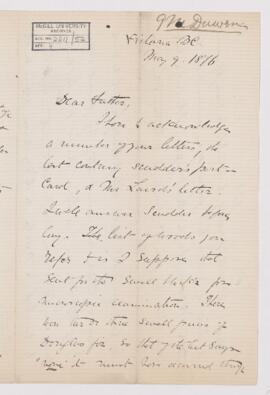 McGILL UNIVERSITY
ARCHIVES
ACC. NO. 2211/52
REF.
G M Dawson
Victoria B.C.
May 9. 1876
Dear Father,
I have to acknowledge
a number of your letters, the
last containing Scudder's post-
Card, & Mr Laird's letter.
I will answer Scudder before
long. The last
refer to is I suppose that
sent for the Small
microscopic examination. There
two or three small pieces of
Douglas fir, so that if the last says
"none" it must have occurred